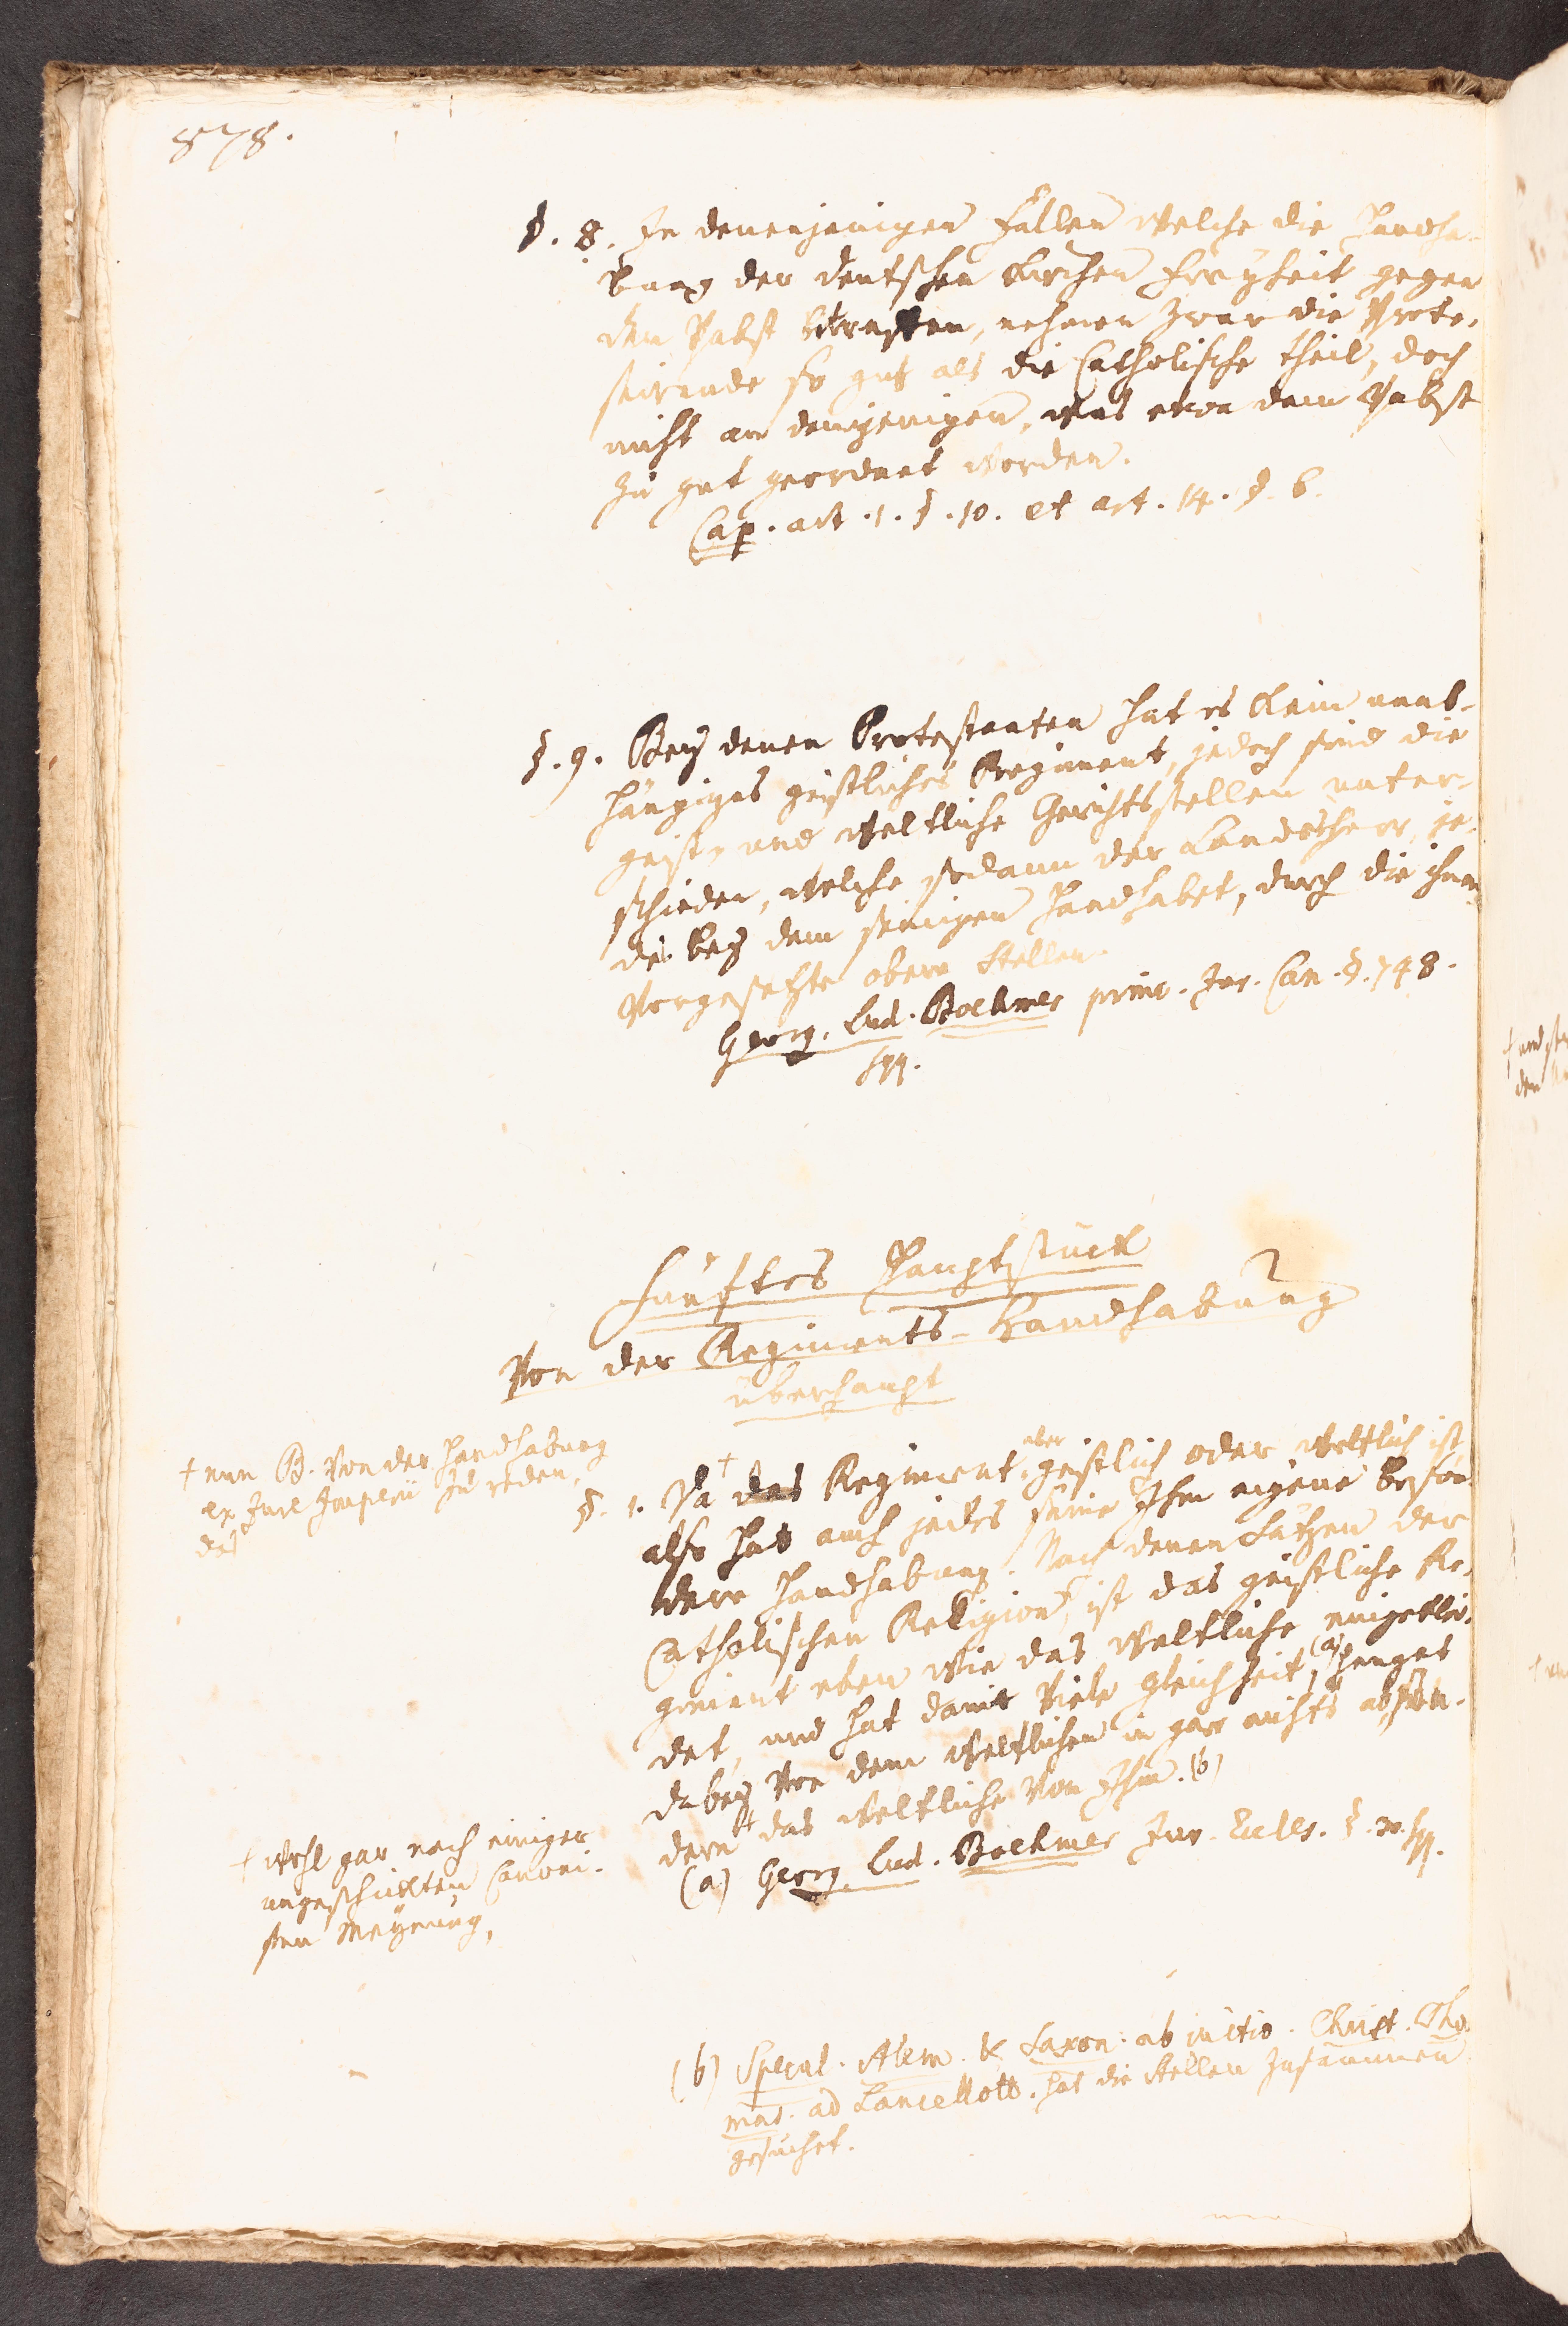 878.
§. 8. In denenjenigen Fällen welche die Handha-
bung der deutschen Kirchen Freyheit gegen
den Pabst betreffen, nehmen zwar die Prote-
stirende so gut als die Catholische theil, doch
nicht an demjenigen, was etwa dem Pabst
zu gut geordnet worden.
Cap. art. 1. §. 10. et art. 14. §. 6.
§. 9. Bey denen Protestanten hat es kein unab-
hängiges geistliches Regiment, jedoch sind die
geist- und weltliche Gerichtsstellen unter-
schieden, welche sodann der Landsherr, je-
de bey dem seinigen handhabet, durch die ihnen
vorgesetzte obere Stellen.
Georg. Lud. Boehmer princ. Jur. Can. §. 748.
sqq.
Fünftes Hauptstück
Von der Regiments-Handhabung
überhaupt
† nun B. von der Handhabung
ex Jure Imperii zu reden,
das
§. 1. Da † das Regiment aber geistlich oder weltlich ist
also hat auch jedes seine Ihm eigene beson-
dere Handhabung. Nach denen Sätzen der
Catholischen Religion †, ist das geistliche Re-
giment eben wie das weltliche eingeklei-
det, und hat damit viele Gleichheit, (a) hanget
dabey von dem weltlichen in gar nichts ab, son-
dern das weltliche von Ihm. (b)
† wohl gar nach einiger
ungeschickten Canoni-
sten Meynung,
(a) Georg. Lud. Boehmer Jur. Eccles. §. 20. sqq.
(b) Specul. Alem. & Saxon. ab initio. Christ. Tho-
mas. ad Lancellott. hat die Stellen zusammen
gesuchet.